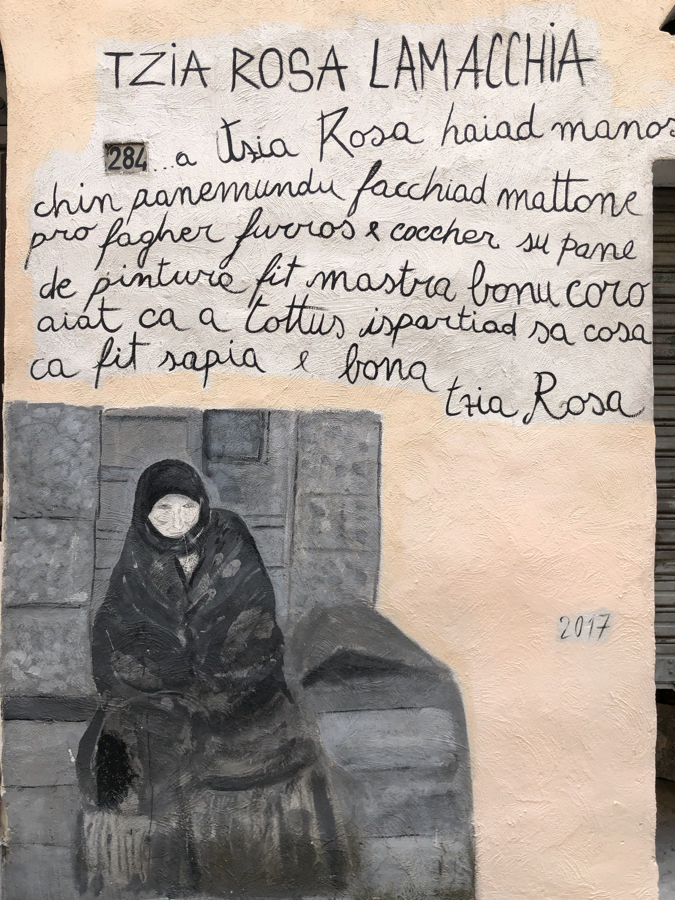 TZIA ROSA LAMACCHIA
284 ...a tzia Rosa haiad manos
chin panemundu facchiad mattone
pro fagher furros e coccher su pane
de pintura fit mastra bonu coro
aiat ca a tottus ispartiad sa cosa
ca fit sapia e bona
tzia Rosa
2017